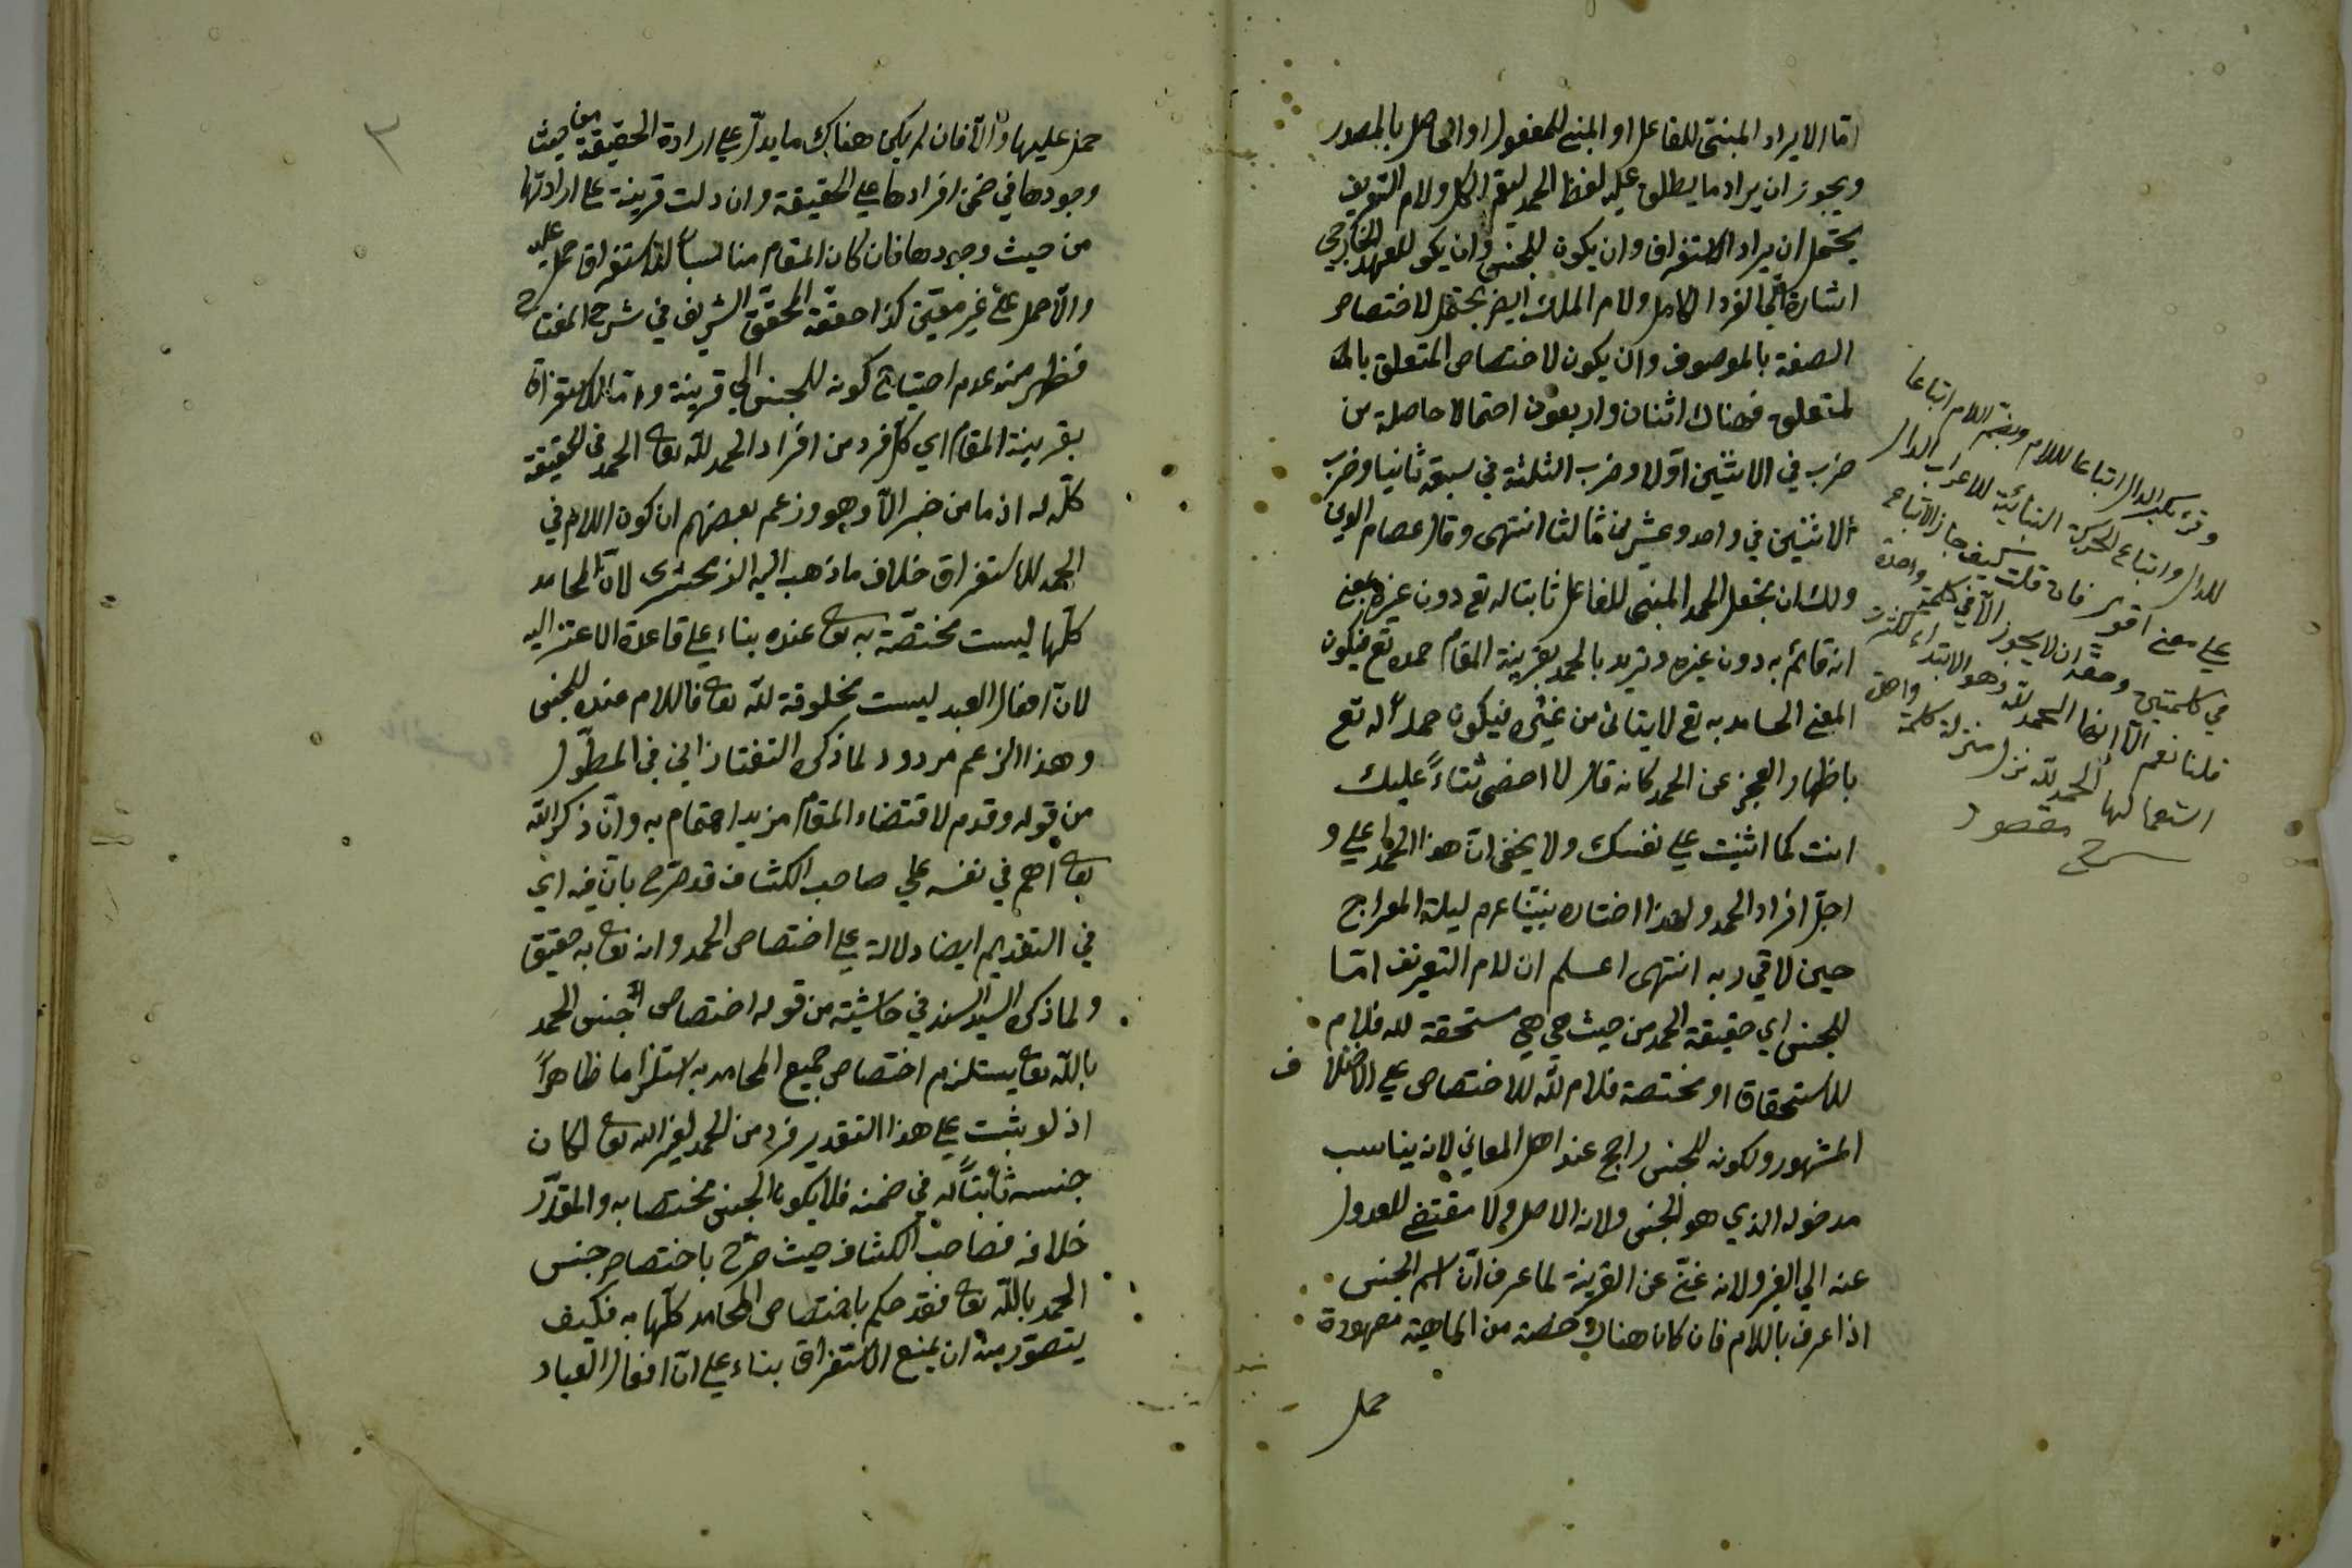 اما الا يراد المبني للفاعل او المبني للمفعول او الحاصل بالمصدر
ويجوز ان يراد ما يطلق عليه لفظ الحمد ليعم الكل ولام التعريف
يحتمل ان يراد الاستغراق وان يكون للجنس وان يكون للعهد الخارجي
اشارة الى الفرد الكامل ولام الملك ايضا يحتمل لاختصاص
الصفة بالموصوف وان يكون لاختصاص المتعلق بالمـ
لمتعلق فهناك اثنان واربعون احتمالا حاصلة من
ضرب في الاثنين اولا وضرب الثلثة في سبعة ثانيا وضرب
الاثنين في واحد وعشرين ثالثا انتهى وقال عصام الدين
ولك ان تجعل الحمد المبني للفاعل ثابتا له تع دون غيره بمعنى
انه قائم به دون غيره وتريد بالحمد بقرينة المقام حمده تع فيكون
المعنى الحامد به تع لا يتأتى من غيره فيكون حمدا له تع
باظهار العجز عن الحمد كانه قال لا احصى ثناءً عليك
انت كما اثنيت على نفسك ولا يخفى ان هذا الحمد اعلى و
اجل افراد الحمد ولهذا اختاره نبينا عم ليلة المعراج
حين لاقي ربه انتهى اعلم ان لام التعريف اما
للجنس اي حقيقة الحمد من حيث هي هي مستحقة لله فلام
للاستحقاق او مختصة فلام لله للاختصاص على الاختلاف
المشهور ولكونه للجنس راجح عند اهل المعاني لانه يناسب
مدخوله الذي هو الجنس ولانه الاصل ولا مقتضى للعدول
عنه الي الغير ولانه غني عن القرينة لما عرف ان اسم الجنس
اذا عرف باللام فان كان هناك حصة من الماهية معهودة
حمل
وقرئ بكسر الدال اتباعا للام وبضم اللام اتباعا
للدال واتباع الحركة البنائية للاعراب الدال
على معنى اقوى فان قلت كيف جاز الاتباع
في كلمتين وحقه ان لا يجوز الا في كلمة واحدة
قلنا نعم الا ان الحمد لله وهو الابتداء لكثرة
استعمالها الحمد لله نزل منزلة كلمة واحدة
شرح مقصود
٣
حمل عليها والا فان لم يكن هناك ما يدل على ارادة الحقيقة من حيث
وجودها في ضمن افرادها على الحقيقة وان دلت قرينة على ارادتها
من حيث وجودها فان كان المقام مناسبا للاستغراق حمل عليه
والا حمل على غير معين كذا حققه المحقق الشريف في شرح المفتاح
فظهر منه عدم احتياج كونه للجنس الى قرينة واما للاستغراق
بقرينة المقام اي كل فرد من افراد الحمد لله تعا الحمد في الحقيقة
كله له اذ ما من خير الا وهو وزعم بعضهم ان كون اللام في
الحمد للاستغراق خلاف ما ذهب اليه الزمخشرى لان المحامد
كلها ليست مختصة به تعا عنده بناء على قاعدة الاعتزاليه
لان افعال العبد ليست مخلوقة لله تعا فاللام عنده للجنس
وهذا الزعم مردود لما ذكره التفتازاني في المطول
من قوله وقدم لاقتضاء المقام مزيد اهتمام به وان ذكر الله
تعا اهم في نفسه على صاحب الكشاف قد صرح بان فيه اي
في التقديم ايضا دلالة على اختصاص الحمد وانه تعا به حقيق
ولما ذكره السيد السند في حاشيته من قوله اختصاص جنس الحمد
بالله تعا يستلزم اختصاص جميع المحامد به استلزاما ظاهراً
اذ لو ثبت على هذا التقدير فرد من الحمد لغير الله تعا لكان
جنسه ثابتاً له في ضمنه فلا يكون الجنس مختصا به والمقدر
خلافه فصاحب الكشاف حيث صرح باختصاص جنس
الحمد بالله تعا فقد حكم باختصاص المحامد كلها به فكيف
يتصور منه ان يمنع الاستغراق بناء على ان افعال العباد